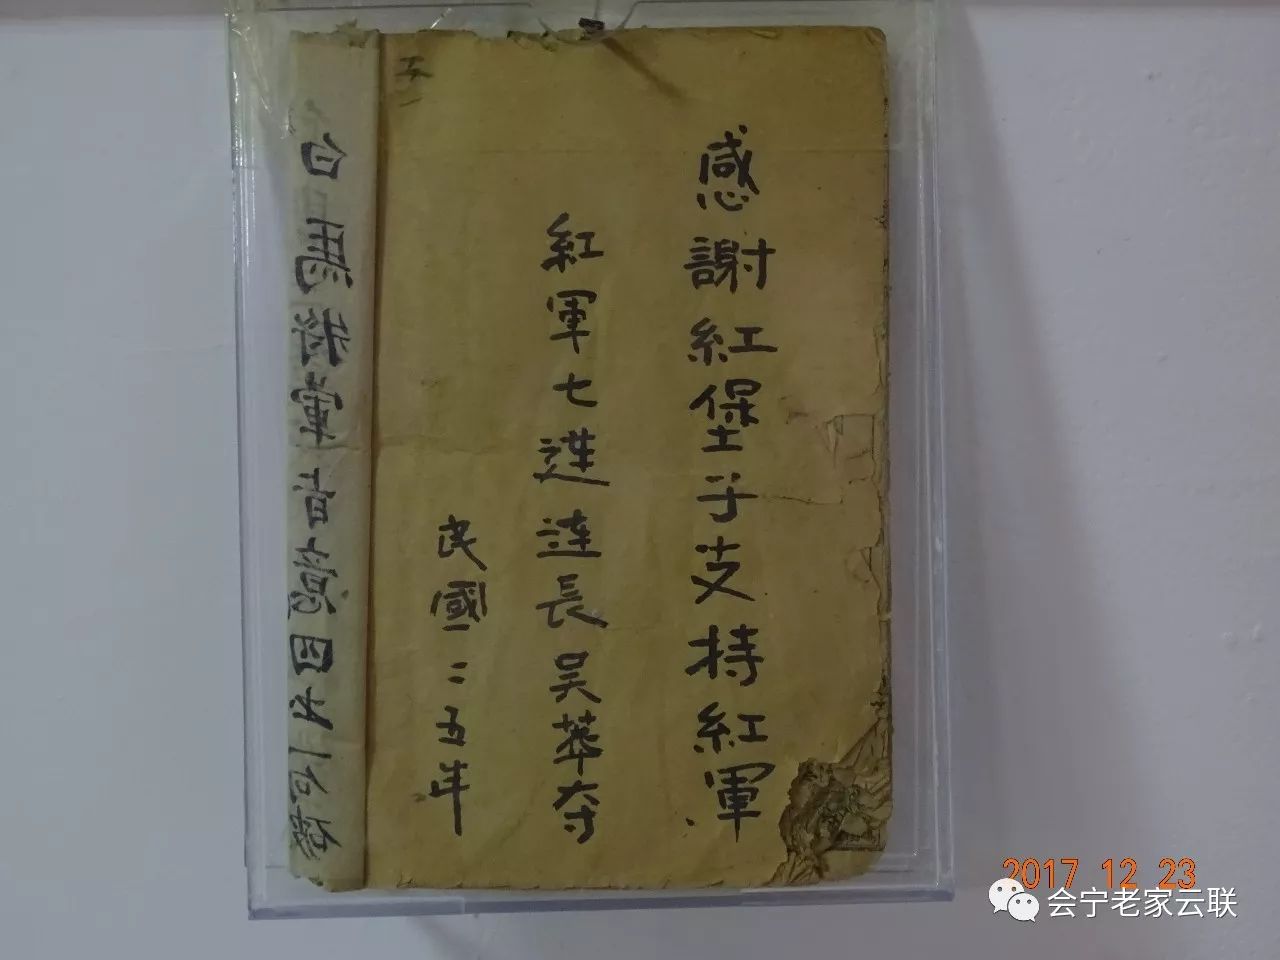 感謝紅堡子支持紅軍
紅軍七連連長吳華夺
民國二五年
白馬將軍
2017 12 23
会宁老家云联